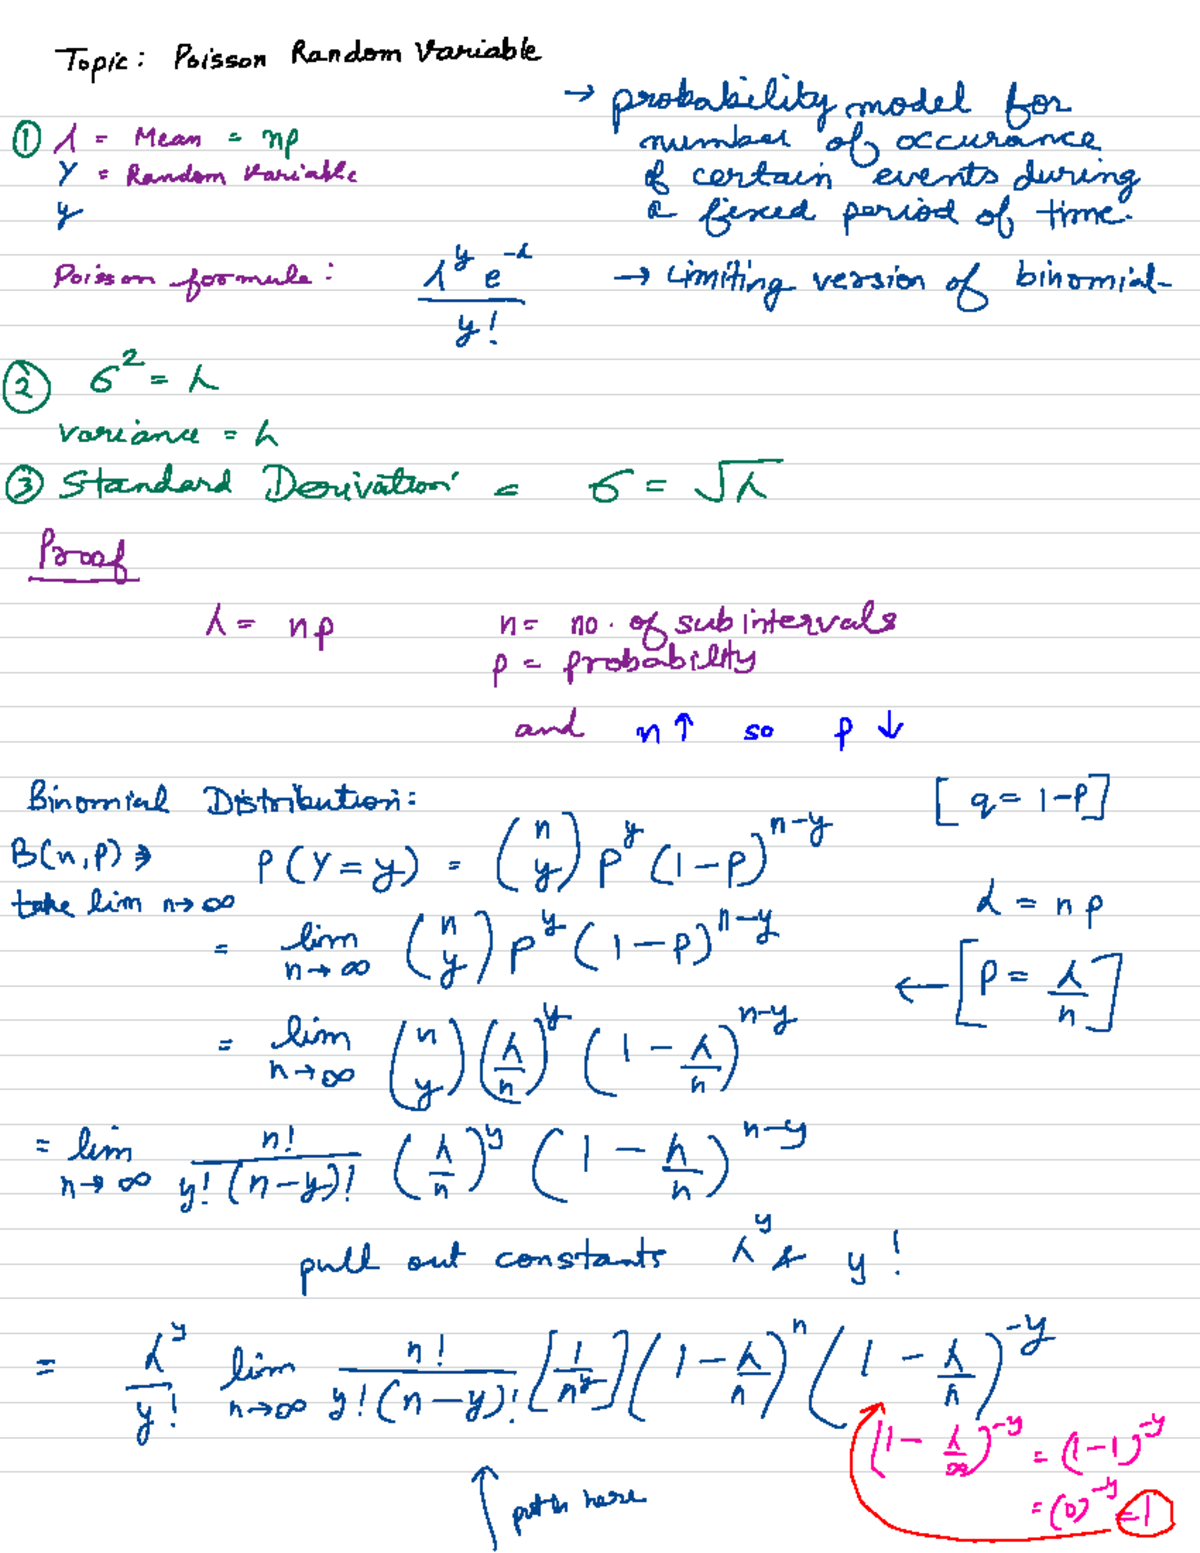 Topic: Poisson Random Variable
→ probability model for
number of occurance
of certain events during
a fixed period of time.
① λ = Mean = np
Y = Random Variable
y
Poisson formule: λ^y e^-λ / y!
→ Limiting version of binomial-
② σ² = λ
variance = λ
③ Standard Derivation = σ = √λ
Proof
λ = np
n = no. of subintervals
p = probability
and n↑ so p↓
Binomial Distribution:
[q = 1-P]
B(n,p) → P(Y=y) = (n y) p^y (1-p)^n-y
take lim n→∞
λ = np
= lim n→∞ (n y) p^y (1-p)^n-y
← [P = λ/n]
= lim n→∞ (n y) (λ/n)^y (1 - λ/n)^n-y
= lim n→∞ n!/y!(n-y)! (λ/n)^y (1 - λ/n)^n-y
pull out constants λ^y & y!
= λ^y/y! lim n→∞ n!/y!(n-y)! [1/n^y] (1 - λ/n)^n (1 - λ/n)^-y
(1 - λ/∞)^-y = (1-1)^-y
= (0)^-y = 1
↑ put n here